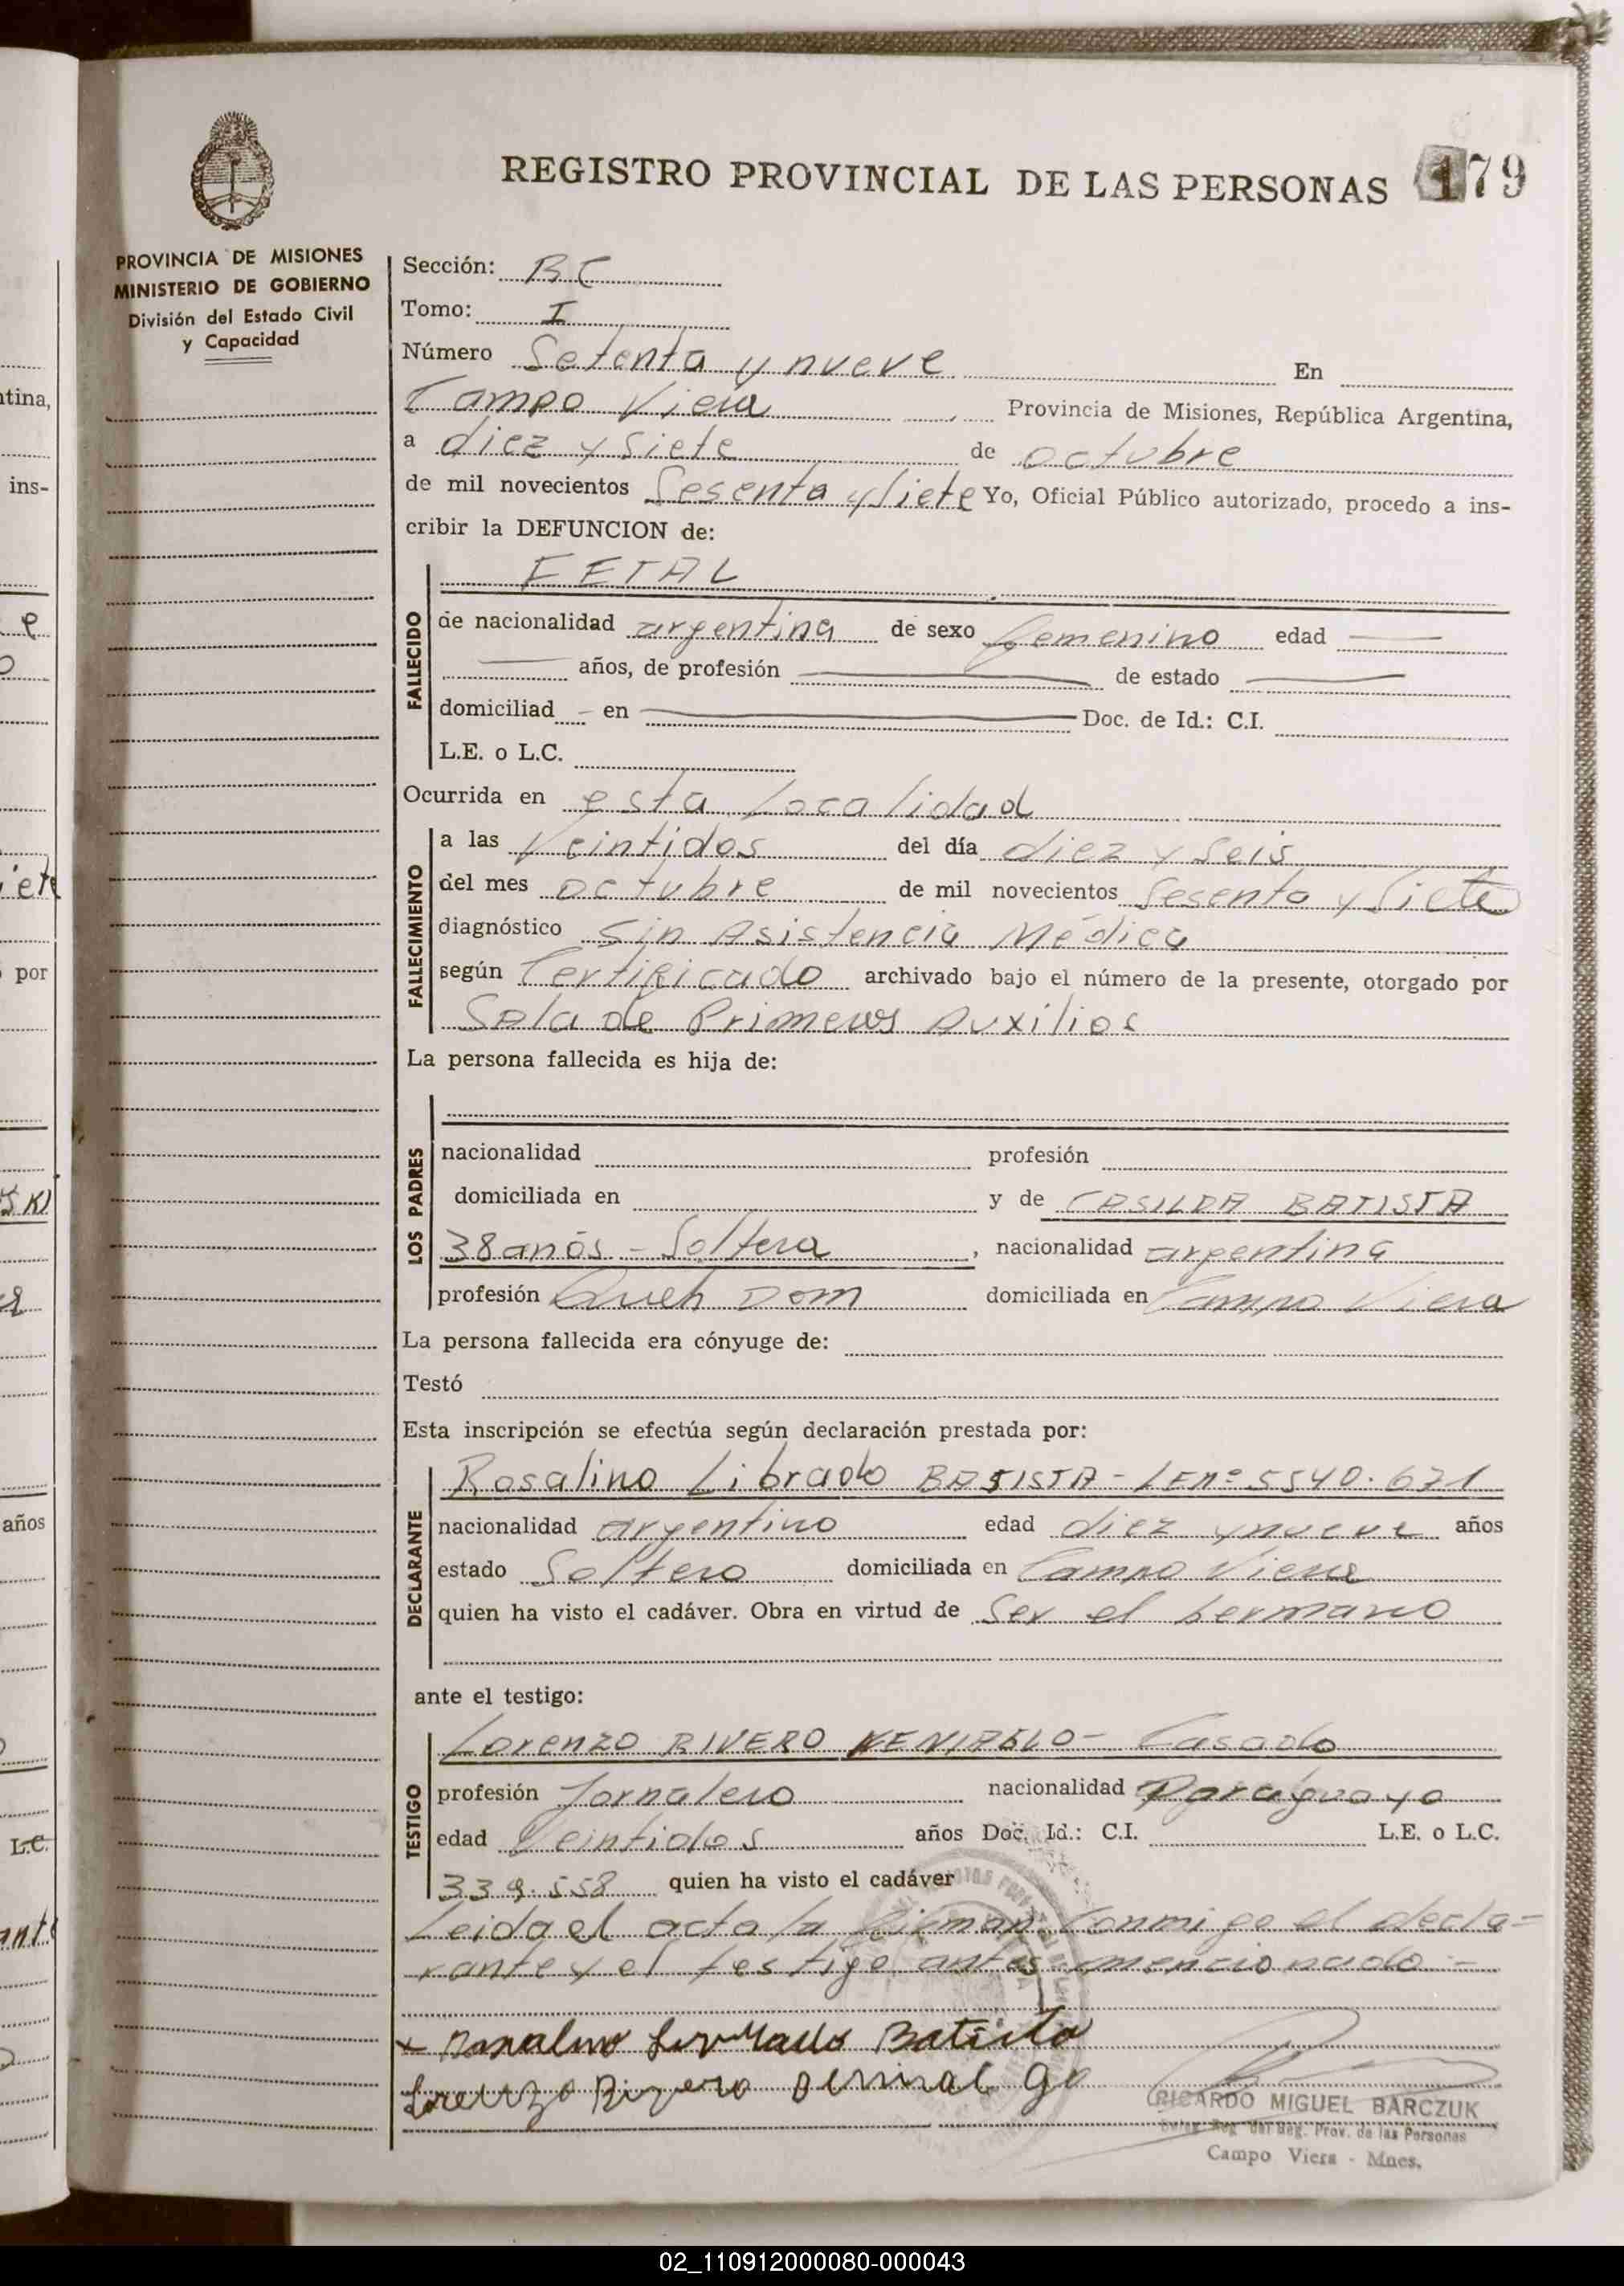 REGISTRO PROVINCIAL DE LAS PERSONAS 179
PROVINCIA DE MISIONES
MINISTERIO DE GOBIERNO
División del Estado Civil
y Capacidad
Sección: BC
Tomo: I
Número Setenta y nueve En
Campo Viera Provincia de Misiones, República Argentina,
a diez y siete de octubre
de mil novecientos Sesenta y siete Yo, Oficial Público autorizado, procedo a ins-
cribir la DEFUNCION de:
FETAL
FALLECIDO
de nacionalidad argentina de sexo femenino edad
años, de profesión de estado
domiciliad en Doc. de Id.: C.I.
L.E. o L.C.
Ocurrida en esta Localidad
FALLECIMIENTO
a las Veintidos del día diez y seis
del mes octubre de mil novecientos Sesenta y Siete
diagnóstico Sin Asistencia Médica
según Certificado archivado bajo el número de la presente, otorgado por
Sala de Primeros Auxilios
La persona fallecida es hija de:
LOS PADRES
nacionalidad profesión
domiciliada en y de CASILDA BATISTA
38 años - Soltera, nacionalidad argentina
profesión Queh Dom domiciliada en Campo Viera
La persona fallecida era cónyuge de:
Testó
Esta inscripción se efectúa según declaración prestada por:
DECLARANTE
Rosalino Librado BATISTA - LEnº 5540.671
nacionalidad argentino edad diez y nueve años
estado Soltero domiciliada en Campo Viera
quien ha visto el cadáver. Obra en virtud de Ser el hermano
ante el testigo:
TESTIGO
Lorenzo RIVERO - Casado
profesión Jornalero nacionalidad Paraguayo
edad Veintidos años Doc. Id.: C.I. L.E. o L.C.
339.558 quien ha visto el cadáver
Leida el acta la firman conmigo el decla-
rante y el testigo antes mencionado -
Batista
RICARDO MIGUEL BARCZUK
Reg. del Reg. Prov. de las Personas
Campo Viera - Mnes.
tina,
ins-
por
años
L.C.
02_110912000080-000043